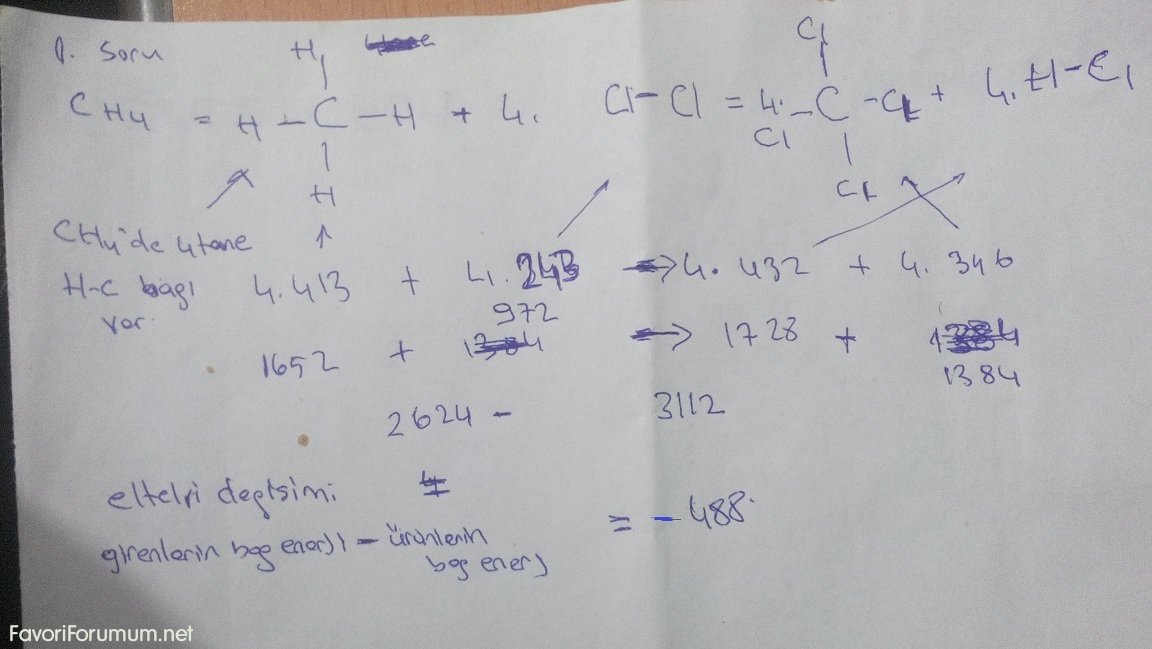 1. Soru
H
CH4 = H - C - H + 4. Cl-Cl = 4. Cl - C - Cl + 4. H-Cl
Cl
H
Cl
CH4'de 4 tane
H-C bagı
var.
4.413 + 4.243 → 4. 432 + 4. 346
972
1652 + → 1728 +
1384
2624 - 3112
girenlerin bag enerji - ürünlerin
bag enerj
= - 488
FavoriForumum.net